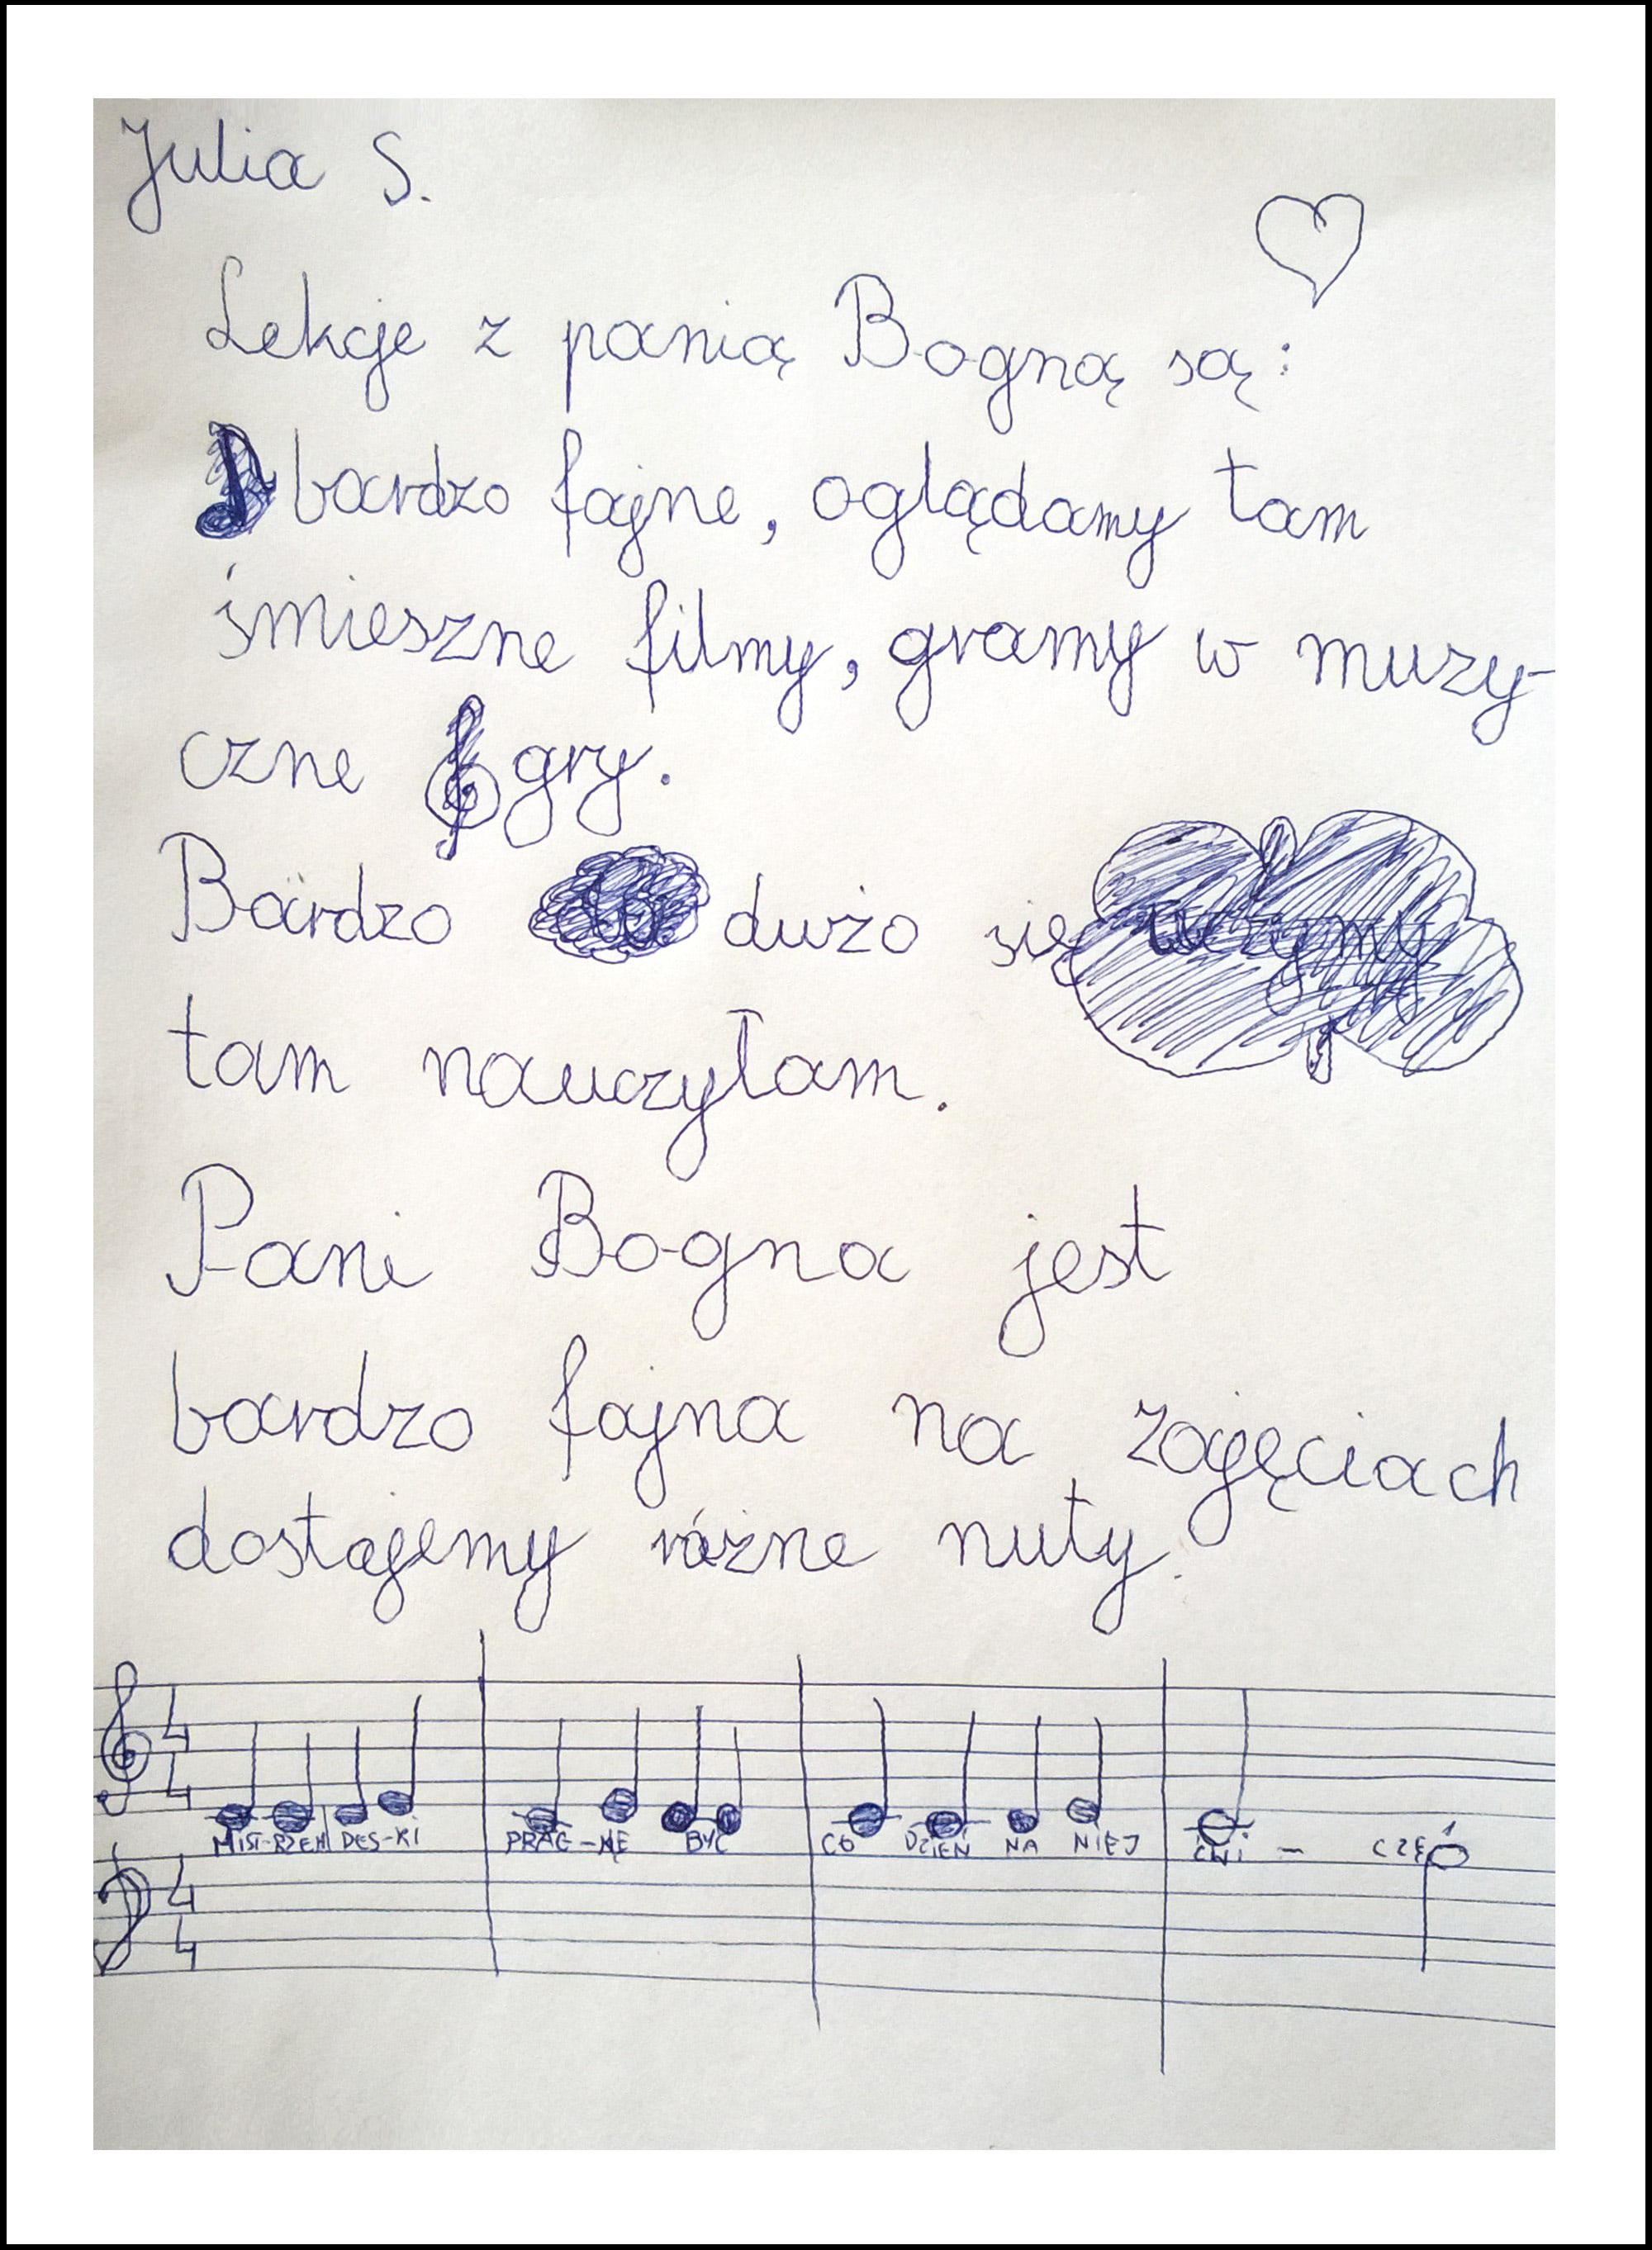 Julia S.
Lekcje z panią Bogną są:
bardzo fajne, oglądamy tam
śmieszne filmy, gramy w muzy-
czne gry.
Bardzo dużo się uczymy
tam nauczyłam.
Pani Bogna jest
bardzo fajna na zajęciach
dostajemy różne nuty.
4 4
MIST-RZEM DES-KI PRAG-NĘ BYĆ CO DZIEŃ NA NIEJ ĆWI - CZĘ
4 4